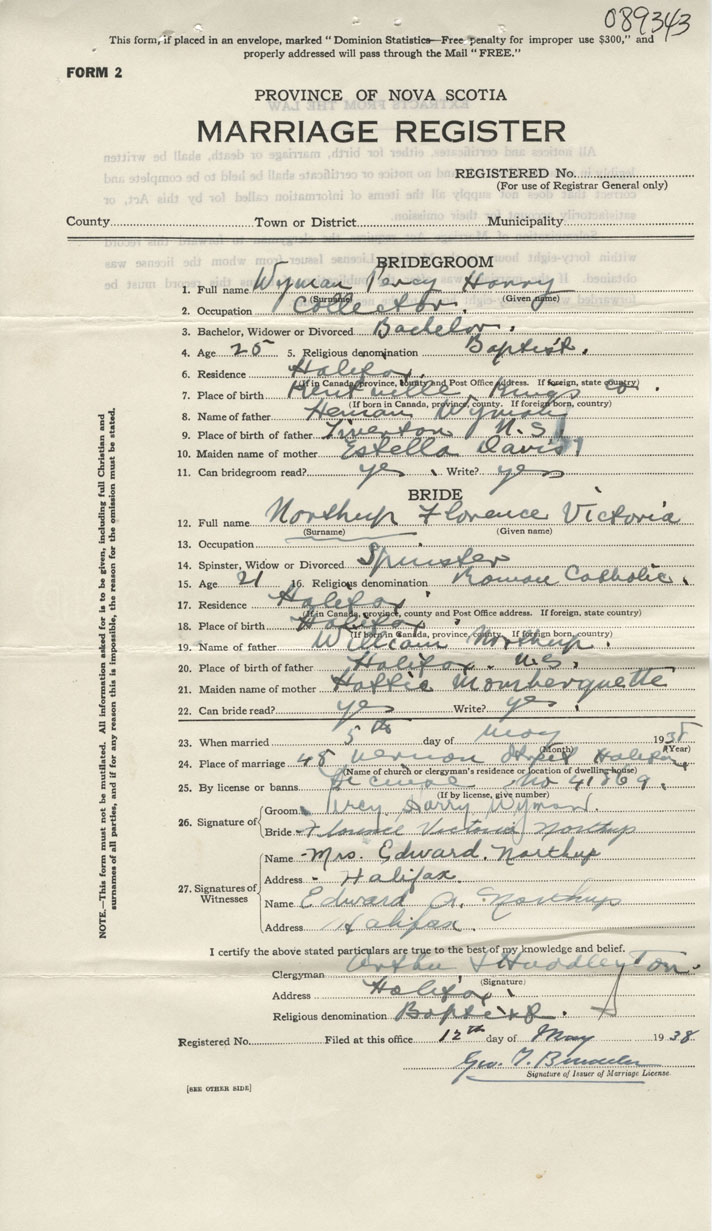 089343
This form, if placed in an envelope, marked "Dominion Statistics—Free penalty for improper use $300," and
properly addressed will pass through the Mail "FREE."
FORM 2
PROVINCE OF NOVA SCOTIA
MARRIAGE REGISTER
REGISTERED No.
(For use of Registrar General only)
County Town or District Municipality
BRIDEGROOM
1. Full name Wyman Percy Harry
(Surname) (Given name)
2. Occupation Collector.
3. Bachelor, Widower or Divorced Bachelor.
4. Age 25 5. Religious denomination Baptist.
6. Residence Halifax.
(If in Canada, province, county and Post Office address. If foreign, state country)
7. Place of birth Kentville Kings Co.
(If born in Canada, province, county. If foreign born, country)
8. Name of father Heman Wyman
9. Place of birth of father Tiverton N.S.
10. Maiden name of mother Estella Davis
11. Can bridegroom read? yes. Write? yes
BRIDE
12. Full name Northup Florence Victoria
(Surname) (Given name)
13. Occupation
14. Spinster, Widow or Divorced Spinster
15. Age 21 16. Religious denomination Roman Catholic.
17. Residence Halifax.
(If in Canada, province, county and Post Office address. If foreign, state country)
18. Place of birth Halifax
(If born in Canada, province, county. If foreign born, country)
19. Name of father William Northup.
20. Place of birth of father Halifax. N.S.
21. Maiden name of mother Hattie
22. Can bride read? yes Write? yes.
23. When married 5th day of May 1938
(Month) (Year)
24. Place of marriage 48 Vernon Street Halifax,
(Name of church or clergyman's residence or location of dwelling-house)
25. By license or banns License No 41869.
(If by license, give number)
26. Signature of
Groom Percy Harry Wyman.
Bride Florence Victoria Northup
27. Signatures of Witnesses
Name Mrs. Edward. Northup
Address Halifax
Name Edward A. Northup
Address Halifax.
I certify the above stated particulars are true to the best of my knowledge and belief.
Clergyman Arthur
(Signature)
Address Halifax.
Religious denomination Baptist.
Registered No. Filed at this office 12th day of May 1938
Geo. T.
Signature of Issuer of Marriage License
[SEE OTHER SIDE]
NOTE.—This form must not be mutilated. All information asked for is to be given, including full Christian and
surnames of all parties, and if for any reason this is impossible, the reason for the omission must be stated.